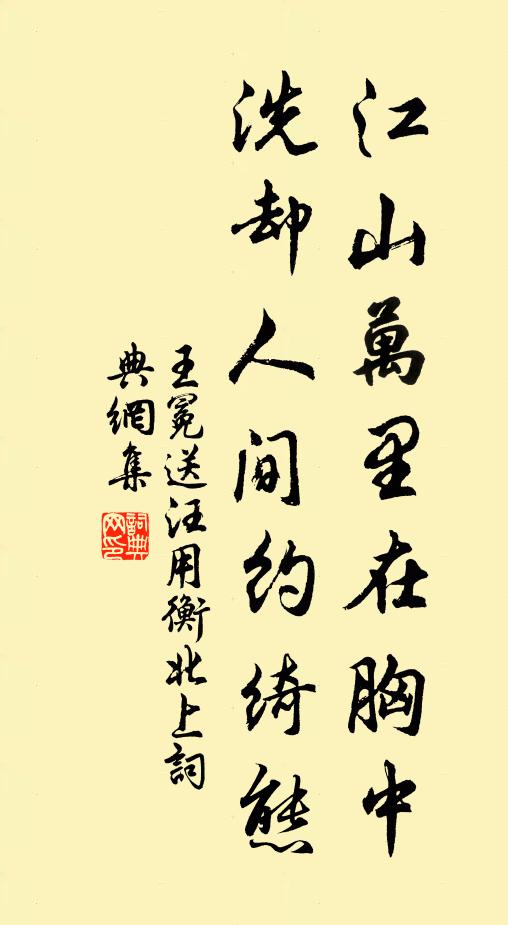 江山萬里在胸中
洗却人間約綺態
王冕送汪用衡北上詞
典網集
詞典
网印